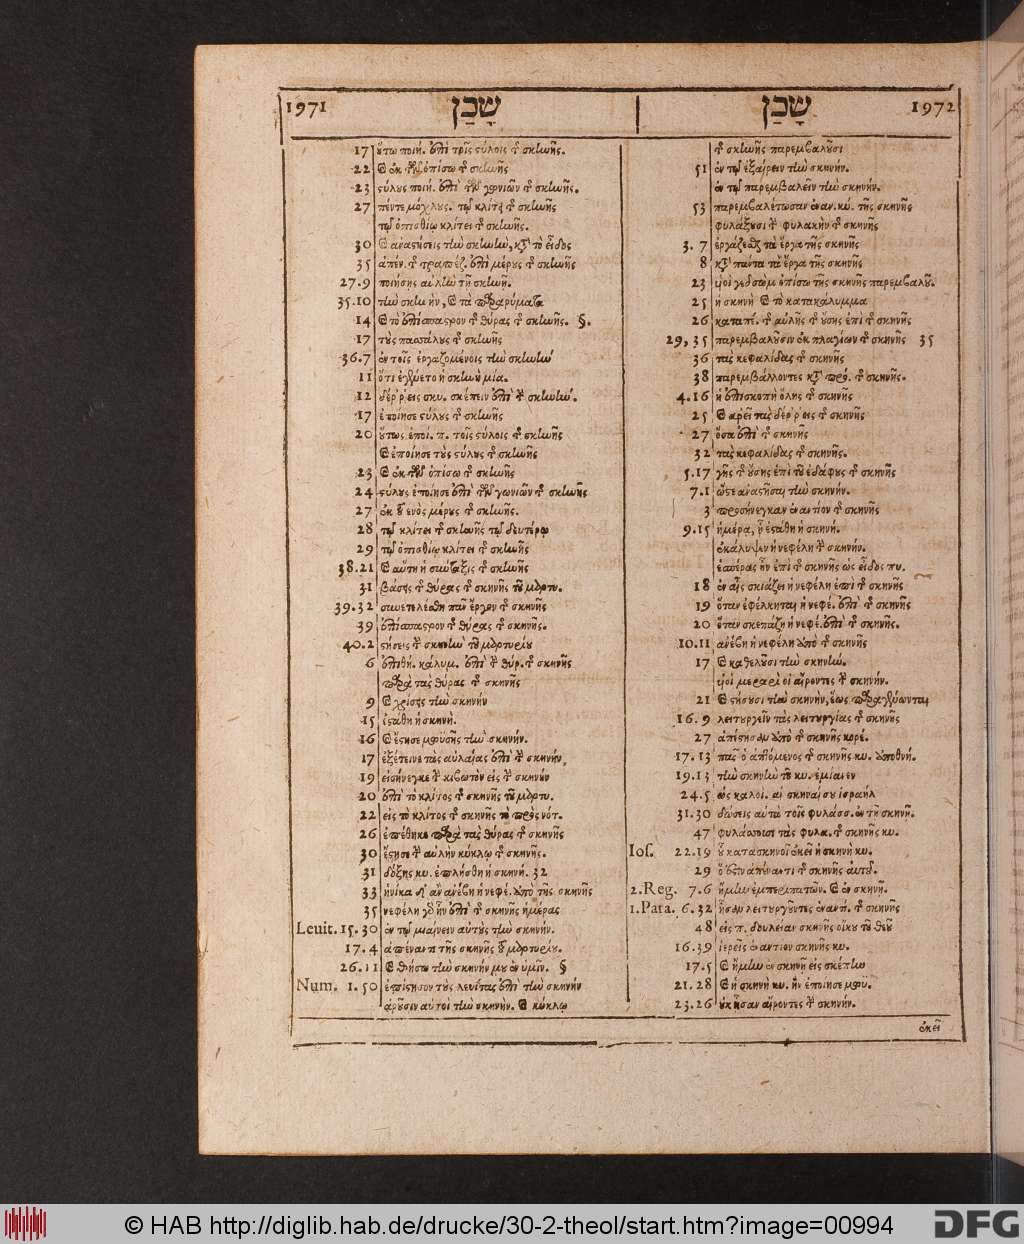 1971 שָׁכַן שָׁכַן 1972
17 ὕτω ποιή. ἐπὶ τοῖς ςύλοις τῆς σκηνῆς.
22 καὶ ἐκ τῶν ὀπίσω τῆς σκηνῆς
23 ςύλυς ποιή. ἐπὶ τῶν γωνιῶν τῆς σκηνῆς.
27 πέντε μόχλυς. τῷ κλίτει τῆς σκηνῆς
τῷ ὀπισθίῳ κλίτει τῆς σκηνῆς.
30 καὶ ἀναςήσεις τὴν σκηνὴν, κατὰ τὸ εἶδος
35 ἀπέν. τῆς τραπέζ. ἐπὶ μέρυς τῆς σκηνῆς
27.9 ποιήσης αὐλὴν τῇ σκηνῇ.
35.10 τὴν σκηνὴν, καὶ τὰ παραρύματα
14 καὶ τὸ ἐπίσπαςρον τῆς θύρας τῆς σκηνῆς. §.
17 τὺς πασσάλυς τῆς σκηνῆς
36.7 ἐν τοῖς ἐργαζομένοις τὴν σκηνὴν
11 ὅτι ἐγένετο ἡ σκηνὴ μία.
12 δέρρεις σκυ. σκέπειν ἐπὶ τὴν σκηνήν.
17 ἐποίησε ςύλυς τῆς σκηνῆς
20 ὕτως ἐποί. π. τοῖς ςύλοις τῆς σκηνῆς
καὶ ἐποίησε τὺς ςύλυς τῆς σκηνῆς
23 καὶ ἐκ τῶν ὀπίσω τῆς σκηνῆς
24 ςύλυς ἐποίησε ἐπὶ τῶν γωνιῶν τῆς σκηνῆς
27 ἐκ τοῦ ἑνὸς μέρυς τῆς σκηνῆς.
28 τῷ κλίτει τῆς σκηνῆς τῷ δευτέρῳ
29 τῷ ὀπισθίῳ κλίτει τῆς σκηνῆς
38.21 καὶ αὕτη ἡ σύνταξις τῆς σκηνῆς
31 βάσης τῆς θύρας τῆς σκηνῆς τοῦ μαρτυ.
39.32 συνετελέσθη πᾶν ἔργον τῆς σκηνῆς
39 ἐπίσπαςρον τῆς θύρας τῆς σκηνῆς.
40.2 ςήσεις τὴν σκηνὴν τοῦ μαρτυρίυ
6 ἐπιθή. κάλυμ. ἐπὶ τὴν θύρ. τῆς σκηνῆς
παρὰ τὰς θύρας τῆς σκηνῆς
9 καὶ χρίσεις τὴν σκηνήν
15 ἐςάθη ἡ σκηνή.
16 καὶ ἔςησε μωϋσῆς τὴν σκηνήν.
17 ἐξέτεινε τὰς αὐλαίας ἐπὶ τὴν σκηνήν,
19 εἰσήνεγκε τὴν κιβωτὸν εἰς τὴν σκηνήν
20 ἐπὶ τὸ κλίτος τῆς σκηνῆς τοῦ μαρτυ.
22 εἰς τὸ κλίτος τῆς σκηνῆς τὸ πρὸς νότ.
26 ἐπέθηκε παρὰ τὰς θύρας τῆς σκηνῆς
30 ἔςησε τὴν αὐλὴν κύκλῳ τῆς σκηνῆς.
31 δόξης κυ. ἐπλήσθη ἡ σκηνή. 32
33 ἡνίκα δ' ἂν ἀνέβη ἡ νεφέ. ἀπὸ τῆς σκηνῆς
35 νεφέλη γὰρ ἦν ἐπὶ τῆς σκηνῆς ἡμέρας
Leuit. 15.30 ἐν τῷ μιαίνειν αὐτὺς τὴν σκηνήν.
17.4 ἀπέναντι τῆς σκηνῆς τοῦ μαρτυρίυ.
26.11 καὶ θήσω τὴν σκηνήν μυ ἐν ὑμῖν. §
Num. 1.50 ἐπίςησον τὺς λευίτας ἐπὶ τὴν σκηνήν
ἀρῦσιν αὐτοὶ τὴν σκηνήν. καὶ κύκλῳ
τῆς σκηνῆς παρεμβαλῦσι
51 ἐν τῷ ἐξαίρειν τὴν σκηνήν.
ἐν τῷ παρεμβαλεῖν τὴν σκηνήν.
53 παρεμβαλέτωσαν ἐναν. κυ. τῆς σκηνῆς
φυλάξυσι τὴν φυλακὴν τῆς σκηνῆς
3. 7 ἐργάζεσθαι τὰ ἔργα τῆς σκηνῆς
8 κατὰ πάντα τὰ ἔργα τῆς σκηνῆς
23 υἱοὶ γεδσὼμ ὀπίσω τῆς σκηνῆς παρεμβαλῦ.
25 ἡ σκηνὴ καὶ τὸ κατακάλυμμα
26 καταπέ. τῆς αὐλῆς τῆς ὔσης ἐπὶ τῆς σκηνῆς
29, 35 παρεμβαλῦσιν ἐκ πλαγίων τῆς σκηνῆς 35
36 τὰς κεφαλίδας τῆς σκηνῆς
38 παρεμβάλλοντες κατὰ πρό. τῆς σκηνῆς.
4.16 ἡ ἐπισκοπὴ ὅλης τῆς σκηνῆς
25 καὶ ἀρεῖ τὰς δέρρεις τῆς σκηνῆς
27 ὅσα ἐπὶ τῆς σκηνῆς
32 τὰς κεφαλίδας τῆς σκηνῆς.
5.17 γῆς τῆς ὔσης ἐπὶ τῦ ἐδάφυς τῆς σκηνῆς
7.1 ὥςε ἀναςῆσαι τὴν σκηνήν.
3 προσήνεγκαν ἐναντίον τῆς σκηνῆς
9.15 ἡμέρᾳ, ᾗ ἐςάθη ἡ σκηνή.
ἐκάλυψεν ἡ νεφέλη τὴν σκηνήν.
ἑσπέρας ἦν ἐπὶ τῆς σκηνῆς ὡς εἶδος πυ.
18 ἐν αἷς σκιάζει ἡ νεφέλη ἐπὶ τῆς σκηνῆς
19 ὅταν ἐφέλκηται ἡ νεφέ. ἐπὶ τῆς σκηνῆς
20 ὅταν σκεπάζῃ ἡ νεφέ. ἐπὶ τῆς σκηνῆς.
10.11 ἀνέβη ἡ νεφέλη ἀπὸ τῆς σκηνῆς
17 καὶ καθελῦσι τὴν σκηνήν.
υἱοὶ μεραρὶ οἱ αἴροντες τὴν σκηνήν.
21 καὶ ςήσυσι τὴν σκηνήν, ἕως παραγένωνται
16. 9 λειτυργεῖν τὰς λειτυργίας τῆς σκηνῆς
27 ἀπέςησαν ἀπὸ τῆς σκηνῆς κορέ.
17.13 πᾶς ὁ ἁπτόμενος τῆς σκηνῆς κυ. ἀποθνή.
19.13 τὴν σκηνὴν τοῦ κυ. ἐμίανεν
24.5 ὡς καλοί. αἱ σκηναί συ ἰσραήλ
31.30 δώσεις αὐτὰ τοῖς φυλάσσ. ἐν τῇ σκηνῇ.
47 φυλάσσυσι τὰς φυλα. τῆς σκηνῆς κυ.
Ios. 22.19 ὗ κατασκηνοῖ ἐκεῖ ἡ σκηνὴ κυ.
29 ὅ ἐςιν ἀπέναντι τῆς σκηνῆς αὐτοῦ.
2.Reg. 7.6 ἤμην ἐμπεριπατῶν. καὶ ἐν σκηνῇ.
1.Para. 6.32 ἦσαν λειτυργῦντες ἐναντ. τῆς σκηνῆς
48 εἰς π. δυλείαν σκηνῆς οἴκυ τοῦ θεῦ
16.39 ἱερεῖς ἐναντίον σκηνῆς κυ.
17.5 καὶ ἤμην ἐν σκηνῇ εἰς σκέπην
21.28 καὶ ἡ σκηνὴ κυ. ἣν ἐποίησε μωϋ.
23.26 ὐκ ἦσαν αἴροντες τὴν σκηνήν.
ἐκεῖ
© HAB http://diglib.hab.de/drucke/30-2-theol/start.htm?image=00994 DFG